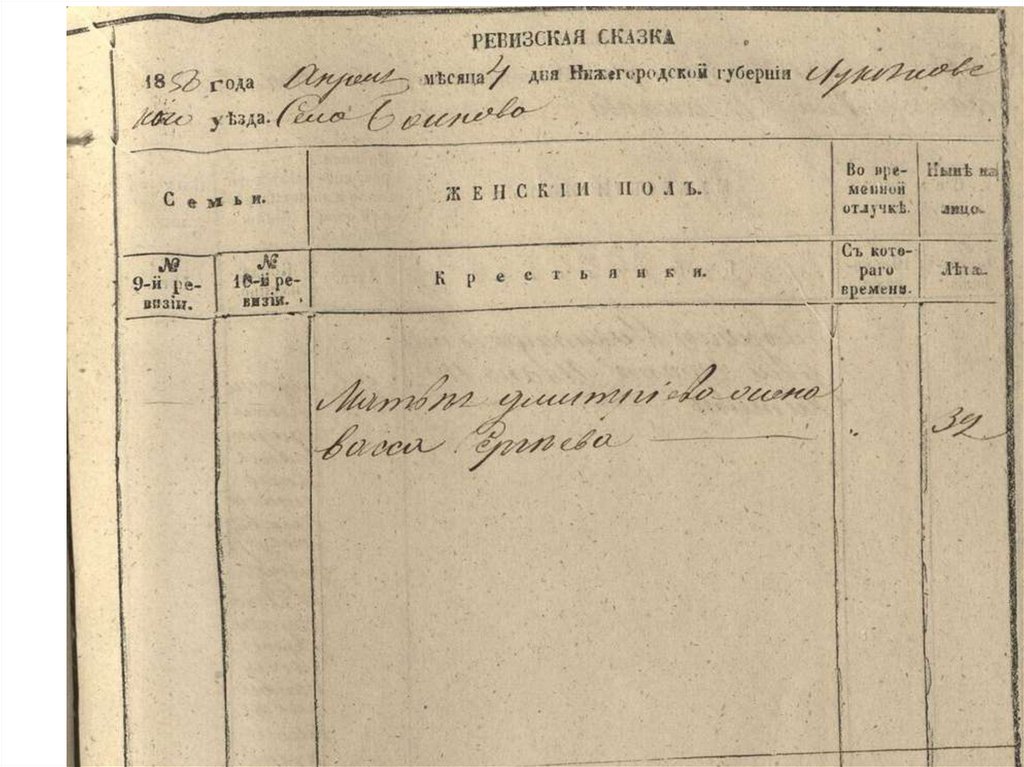 РЕВИЗСКАЯ СКАЗКА
1858 года Апреля мѣсяца 4 дня Нижегородской губерніи Лукоянов
ской уѣзда. Село
Семьи.
ЖЕНСКІЙ ПОЛЪ.
Во вре-
менной
отлучкѣ.
Нынѣ на
лицо.
№
9-й ре-
визіи.
№
10-й ре-
визіи.
Крестьянки.
Съ кото-
раго
времени.
Лѣта.
Матвѣя дмитріева жена
васса Сергѣева
32